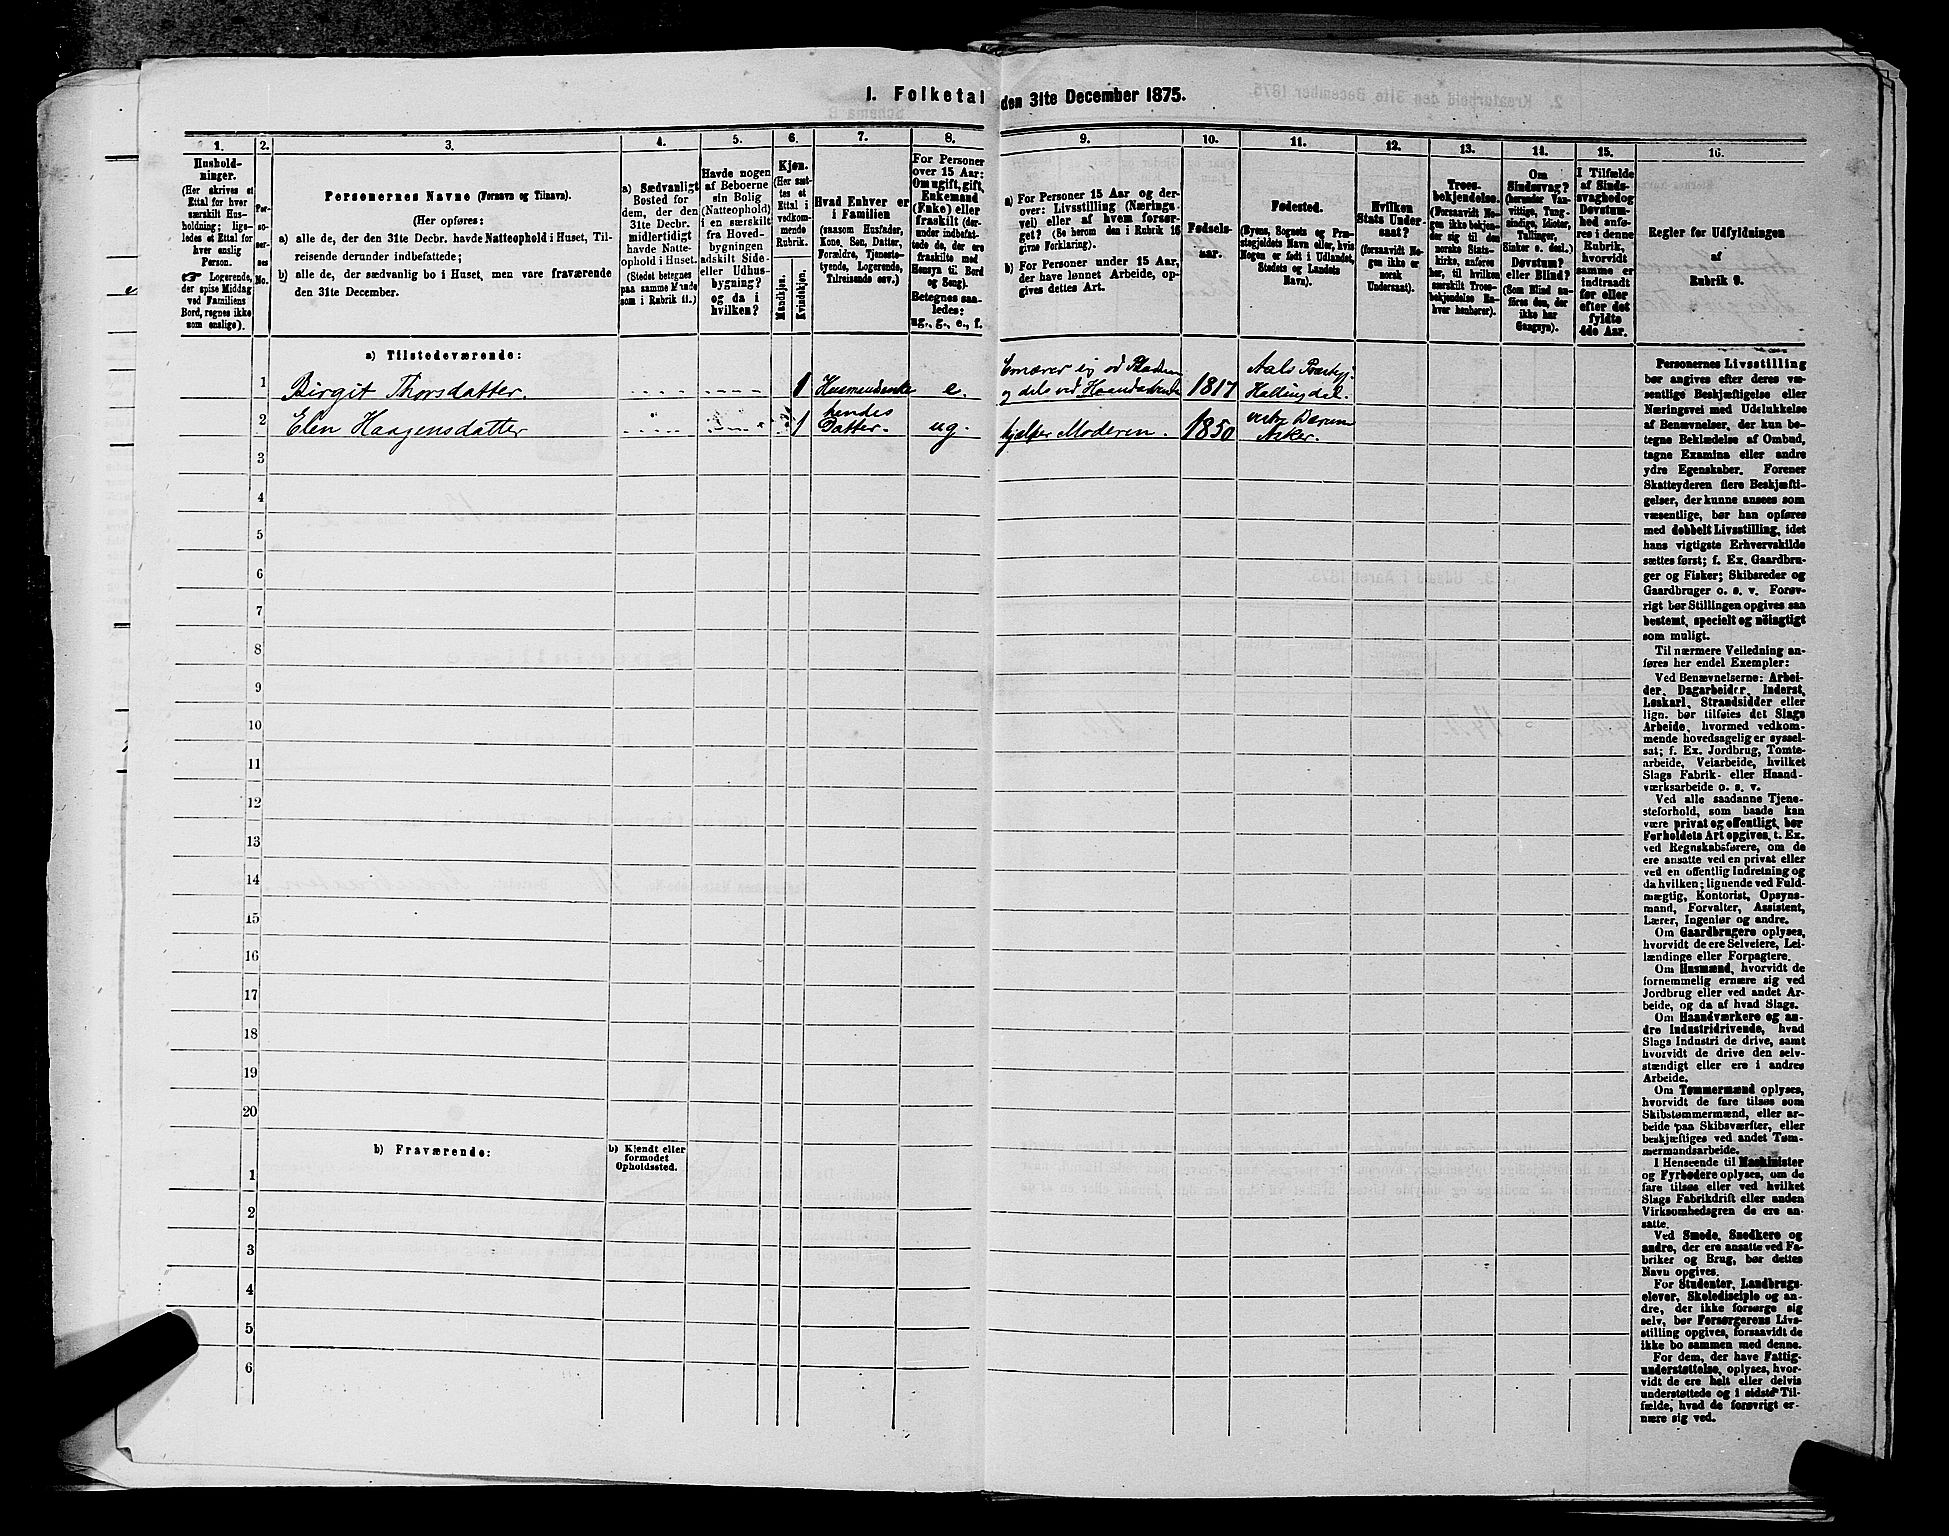 1. Folketal den 31te December 1875.
1. 2. 3. 4. 5. 6. 7. 8. 9. 10. 11. 12. 13. 14. 15. 16.
Hushold-
ninger.
(Her skrives et
Ettal for hver
særskilt Hus-
holdning; lige-
ledes et Ettal for
hver enslig
Person.
☛ Logerende,
der spise Middag
ved Familiens
Bord, regnes ikke
som enslige).
Per-
so-
ner-
nes
No.
Personernes Navne (Fornavn og Tilnavn).
(Her opføres:
a) alle de, der den 31te Decbr. havde Natteophold i Huset, Til-
reisende derunder indbefattede;
b) alle de, der sædvanlig bo i Huset, men vare fraværende
den 31te December.
a) Sædvanligt
Bosted for
dem, der den
31te Decbr.
midlertidigt
havde Natte-
ophold i Huset.
(Stedet betegnes
paa samme Maade
som i Rubrik 11.)
Havde nogen
af Beboerne
sin Bolig
(Natteophold)
i en særskilt
fra Hoved-
bygningen
adskilt Side-
eller Udhus-
bygning?
og da i
hvilken?
Kjøn.
(Her sæt-
tes et
Ettal i
vedkom-
mende
Rubrik.
Mandkjøn.
Kvindekjøn.
Hvad Enhver er
i Familien
(saasom Husfader,
Kone, Søn, Datter,
Forældre, Tjeneste-
tyende, Logerende,
Tilreisende osv.)
For Personer
over 15 Aar:
Om ugift, gift,
Enkemand
(Enke) eller
fraskilt (der-
under indbefat-
tede de, der ere
fraskilte med
Hensyn til Bord
og Seng).
Betegnes saa-
ledes:
ug., g., e., f.
a) For Personer 15 Aar og der-
over: Livsstilling (Nærings-
vei) eller af hvem forsør-
get? (Se herom den i Rubrik 16
givne Forklaring).
b) For Personer under 15 Aar,
der have lønnet Arbeide, op-
gives dettes Art.
Fødsels-
aar.
Fødested.
(Byens, Sognets og Præ-
stegjeldets Navn eller, hvis
Nogen er født i Udlandet,
Stedets og Landets
Navn).
Hvilken
Stats Under-
saat?
(forsaavidt No-
gen ikke er
norsk
Undersaat).
Troes-
bekjendelse.
(Forsaavidt No-
gen ikke bekjen-
der sig til den
norske Stats-
kirke, anføres
her, til hvilken
særskilt Troes-
bekjendelse En-
hver henhører).
Om
Sindssvag?
(herunder Van-
vittige, Tung-
sindige, Idioter,
Tullinger,
Sinker o. desl.)
Døvstum?
eller Blind?
(Som Blind an-
føres den, der
ikke har
Gangsyn).
I Tilfælde
af Sinds-
svaghed og
Døvstum-
hed anfø-
res i denne
Rubrik,
hvorvidt
samme er
indtraadt
før eller
efter det
fyldte
4de Aar.
Regler for Udfyldningen
af
Rubrik 9.
a) Tilstedeværende:
1 Birgit Thorsdatter. 1 e. 1817 Aals Hallingdal.
2 Elen Haagensdatter 1 Datter. ug. hjælper Moderen. 1850 Asker.
3
4
5
6
7
8
9
10
11
12
13
14
15
16
17
18
19
20
b) Fraværende:
b) Kjendt eller
formodet
Opholdssted.
1
2
3
4
5
6
Personernes Livsstilling
bør angives efter deres væ-
sentlige Beskjæftigelse eller
Næringsvei med Udelukkelse
af Benævnelser, der kun be-
tegne Beklædelse af Ombud,
tagne Examina eller andre
ydre Egenskaber. Forener
Skatteyderen flere Beskjæfti-
gelser, der kunne ansees som
væsentlige, bør han opføres
med dobbelt Livsstilling, idet
hans vigtigste Erhvervskilde
sættes først; f. Ex. Gaardbru-
ger og Fisker; Skibsreder og
Gaardbruger o. s. v. Forøv-
rigt bør Stillingen opgives saa
bestemt, specielt og nöiagtigt
som muligt.
Til nærmere Veiledning an-
føres her endel Exempler:
Ved Benævnelserne: Arbei-
der, Dagarbeider, Inderst,
Løskarl, Strandsidder eller
lign. bør tilføies det Slags
Arbeide, hvormed vedkom-
mende hovedsagelig er syssel-
sat; f. Ex. Jordbrug, Tomte-
arbeide, Veiarbeide, hvilket
Slags Fabrik- eller Haand-
værksarbeide o. s. v.
Ved alle saadanne Tjene-
steforhold, som baade kan
være privat og offentligt, bør
Forholdets Art opgives, t. Ex.
ved Regnskabsførere, om de
ere ansatte ved en privat eller
ved en offentlig Indretning og
da hvilken; lignende ved Fuld-
mægtig, Kontorist, Opsyns-
mand, Forvalter, Assistent,
Lærer, Ingeniør og andre.
Om Gaardbrugere oplyses,
hvorvidt de ere Selveiere, Lei-
lændinge eller Forpagtere.
Om Husmænd, hvorvidt de
fornemmelig ernære sig ved
Jordbrug eller ved andet Ar-
beide, og da af hvad Slags.
Om Haandværkere og an-
dre industridrivende, hvad
Slags Industri de drive, samt
hvorvidt de drive den selv-
stændigt eller ere i andres
Arbeide.
Om Tømmermænd oplyses,
hvorvidt de fare tilsøs som
Skibstømmermænd, eller ar-
beide paa Skibsværfter, eller
beskjæftiges ved andet Tøm-
mermandsarbeide.
I Henseende til Maskinister
og Fyrbødere oplyses, om de
fare tilsøs eller ved hvilket
Slags Fabrikdrift eller anden
Virksomhedsgren de ere an-
satte.
Ved Smede, Snedkere og
andre, der ere ansatte ved Fa-
briker og Brug, bør dettes
Navn opgives.
For Studenter, Landbrugs-
elever, Skoledisciple og an-
dre, der ikke forsørge sig
selv, bør Forsørgerens Livs-
stilling opgives, forsaavidt de
ikke bo sammen med denne.
For dem, der have Fattig-
understøttelse, oplyses, hvor-
vidt de ere helt eller delvis
understøttede og i sidste Til-
fælde, hvad de forøvrigt er-
nære sig ved.